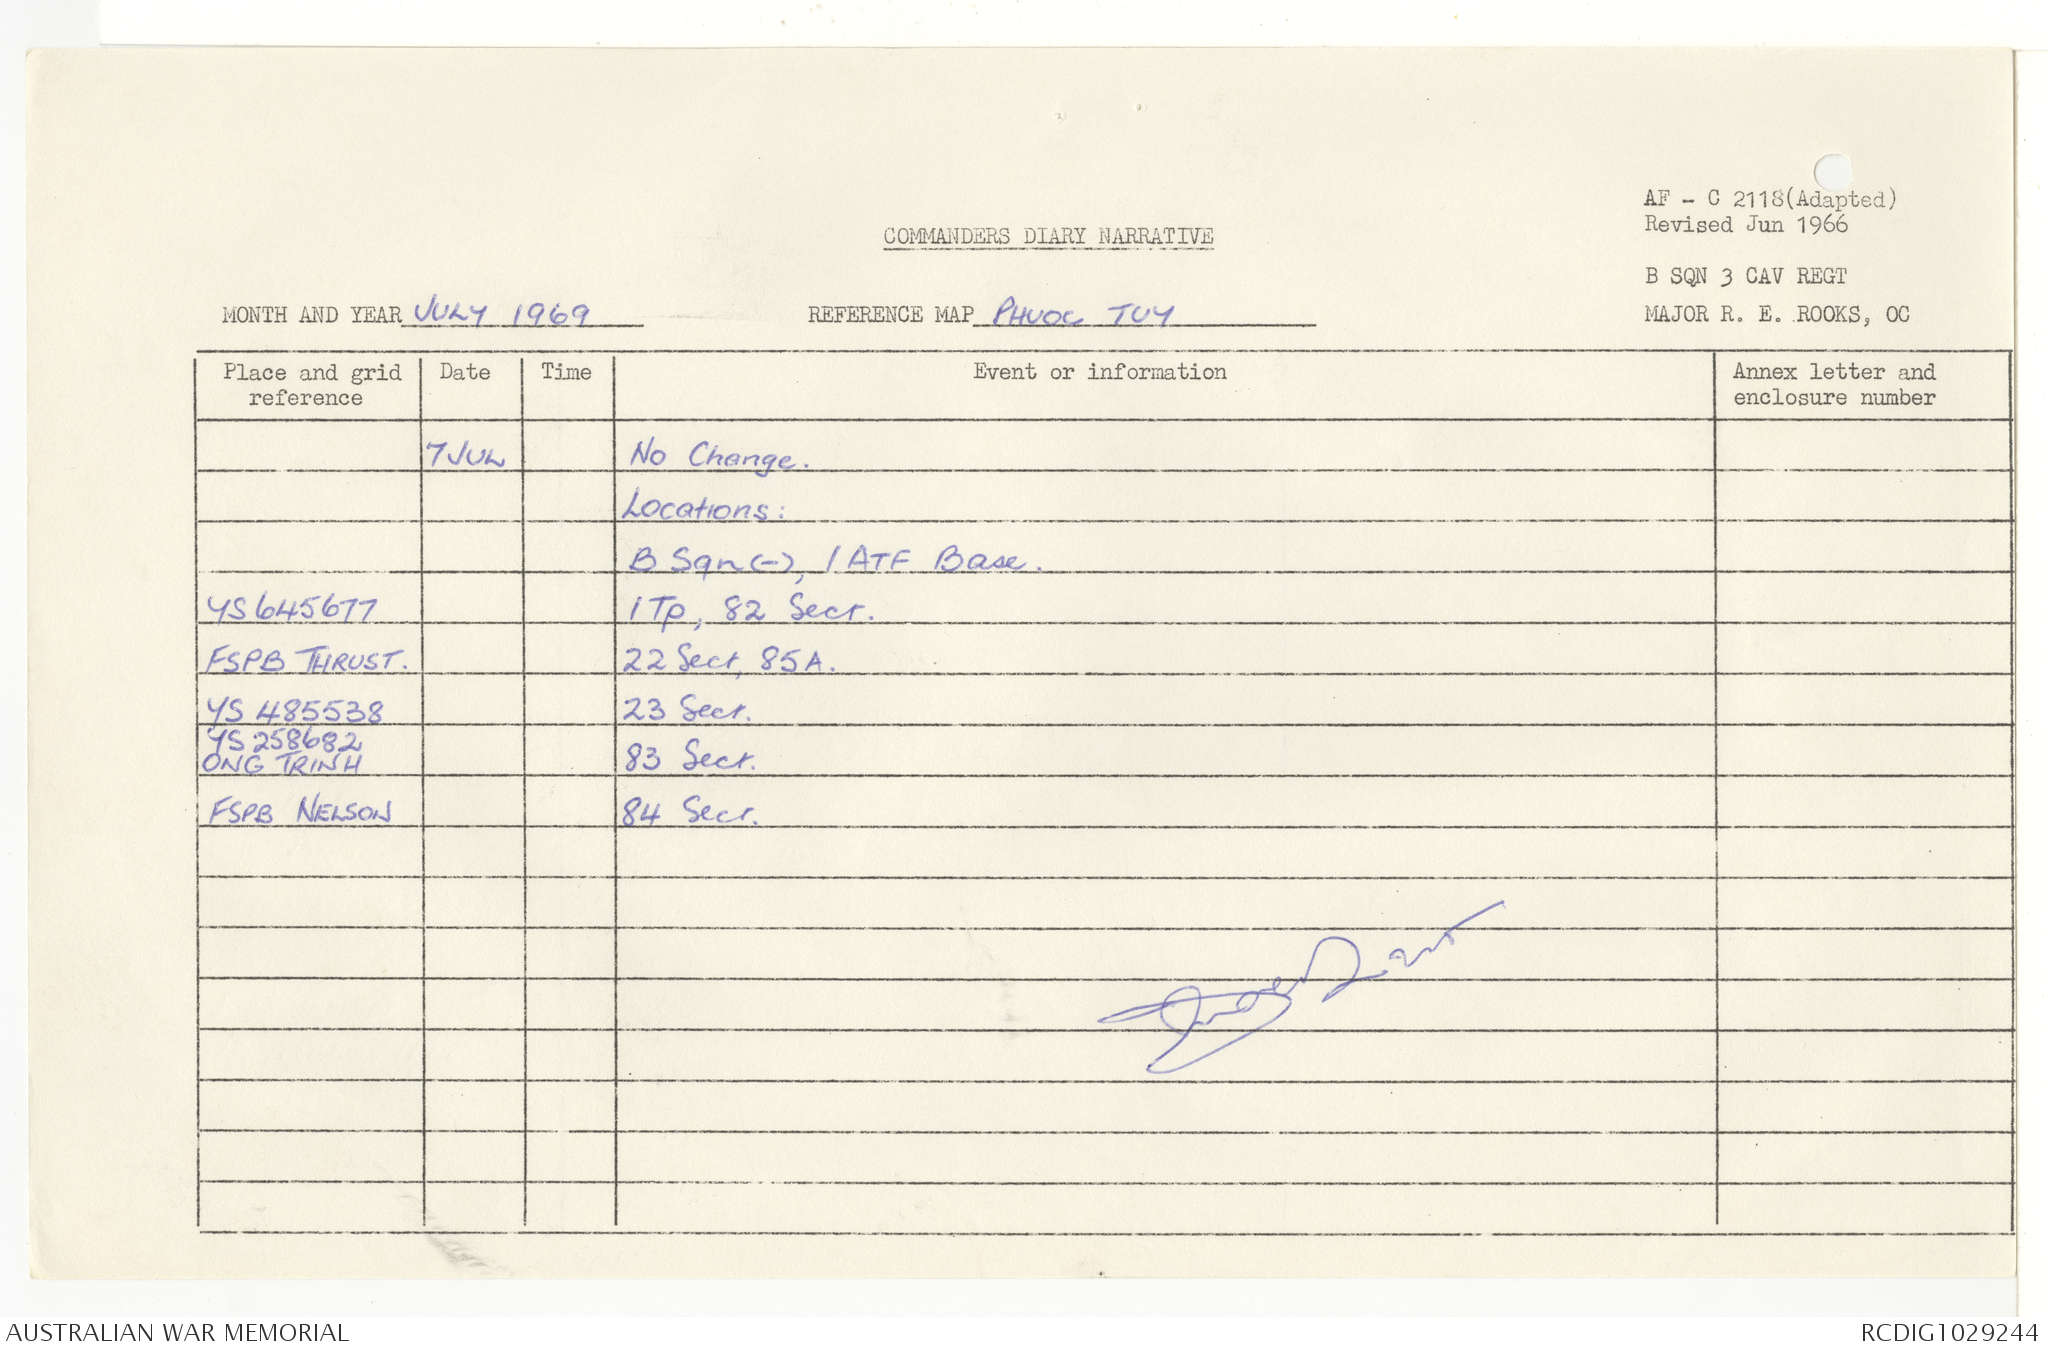 AF - C 2118(Adapted)
Revised Jun 1966
COMMANDERS DIARY NARRATIVE
B SQN 3 CAV REGT
MONTH AND YEAR JULY 1969 REFERENCE MAP PHUOC TUY MAJOR R. E. ROOKS, OC
Place and grid reference Date Time Event or information Annex letter and enclosure number
7 JUL No Change.
Locations:
B Sqn(-), 1 ATF Base.
YS 645677 1 Tp, 82 Sect.
FSPB THRUST. 22 Sect, 85A.
YS 485538 23 Sect.
YS 258682
ONG TRINH 83 Sect.
FSPB NELSON 84 Sect.
AUSTRALIAN WAR MEMORIAL RCDIG1029244